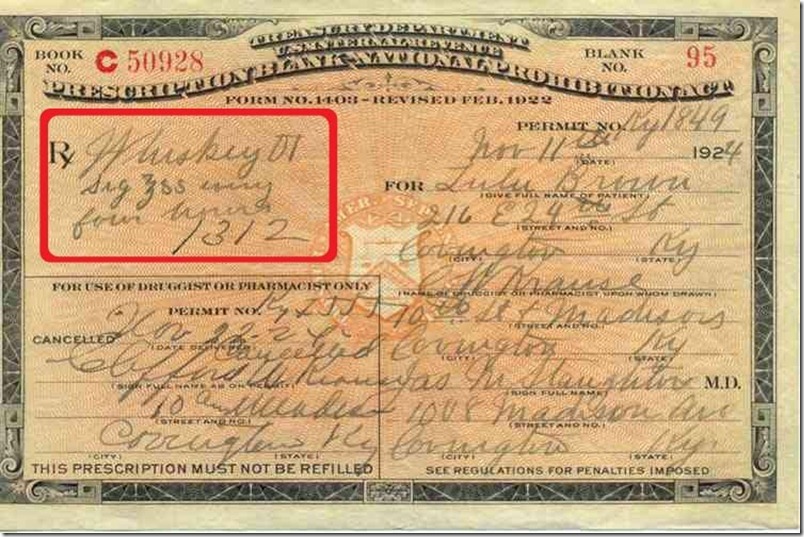 TREASURY DEPARTMENT
U.S. INTERNAL REVENUE
BOOK NO. C 50928
BLANK NO. 95
PRESCRIPTION BLANK-NATIONAL PROHIBITION ACT
FORM NO. 1403-REVISED FEB. 1922
PERMIT NO. Ky 1849
R Whiskey
Sig ʒss every
four hours
1312
Nov 11th 1924
(DATE)
FOR Lulu Brown
(GIVE FULL NAME OF PATIENT)
216 E 24th St
(STREET AND NO.)
Covington Ky
(CITY) (STATE)
FOR USE OF DRUGGIST OR PHARMACIST ONLY
Krause
(NAME OF DRUGGIST OR PHARMACIST UPON WHOM DRAWN)
PERMIT NO. Ky
10th St & Madison
(STREET AND NO.)
CANCELLED Nov
(DATE DELIVERED)
Cancelled
Covington Ky
(CITY) (STATE)
(SIGN FULL NAME AS ON PERMIT)
Jas M Slaughter M.D.
(SIGN FULL NAME)
10
(STREET AND NO.)
1008 Madison Ave
(STREET AND NO.)
Covington Ky
(CITY) (STATE)
Covington Ky
(CITY) (STATE)
THIS PRESCRIPTION MUST NOT BE REFILLED
SEE REGULATIONS FOR PENALTIES IMPOSED